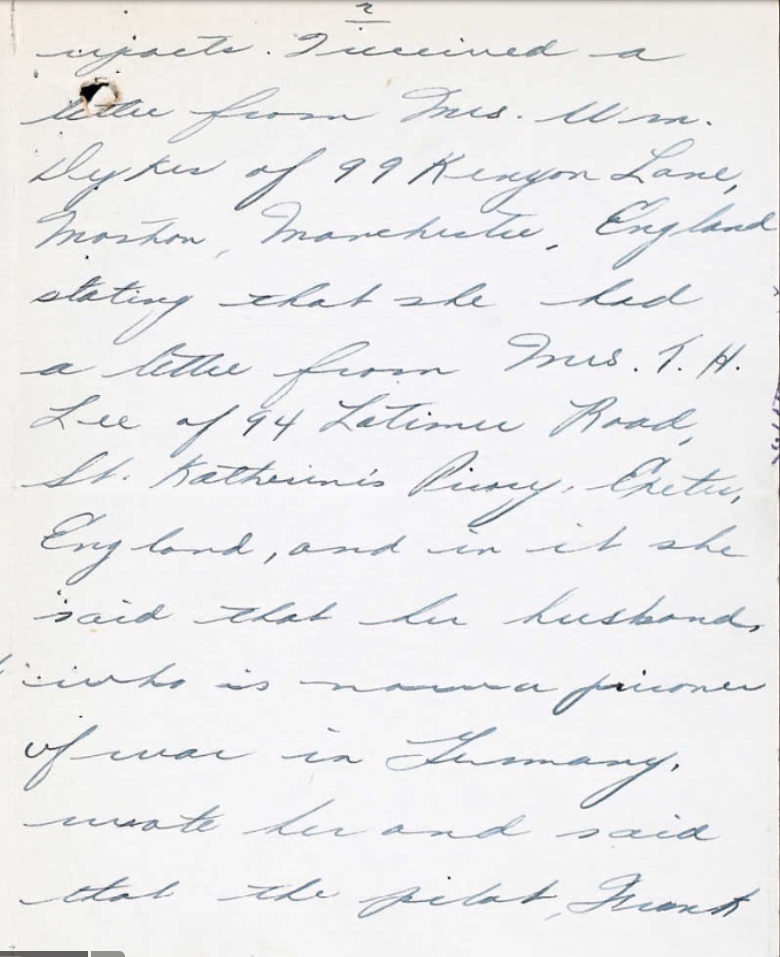 2
reports. I received a
letter from Mrs. Wm.
Dykes of 99 Kenyon Lane,
Moston, Manchester, England
stating that she had
a letter from Mrs. T. H.
Lee of 94 Latimer Road,
St. Katherine's Priory, Exeter,
England, and in it she
said that her husband,
who is now a prisoner
of war in Germany,
wrote her and said
that the pilot, Frank